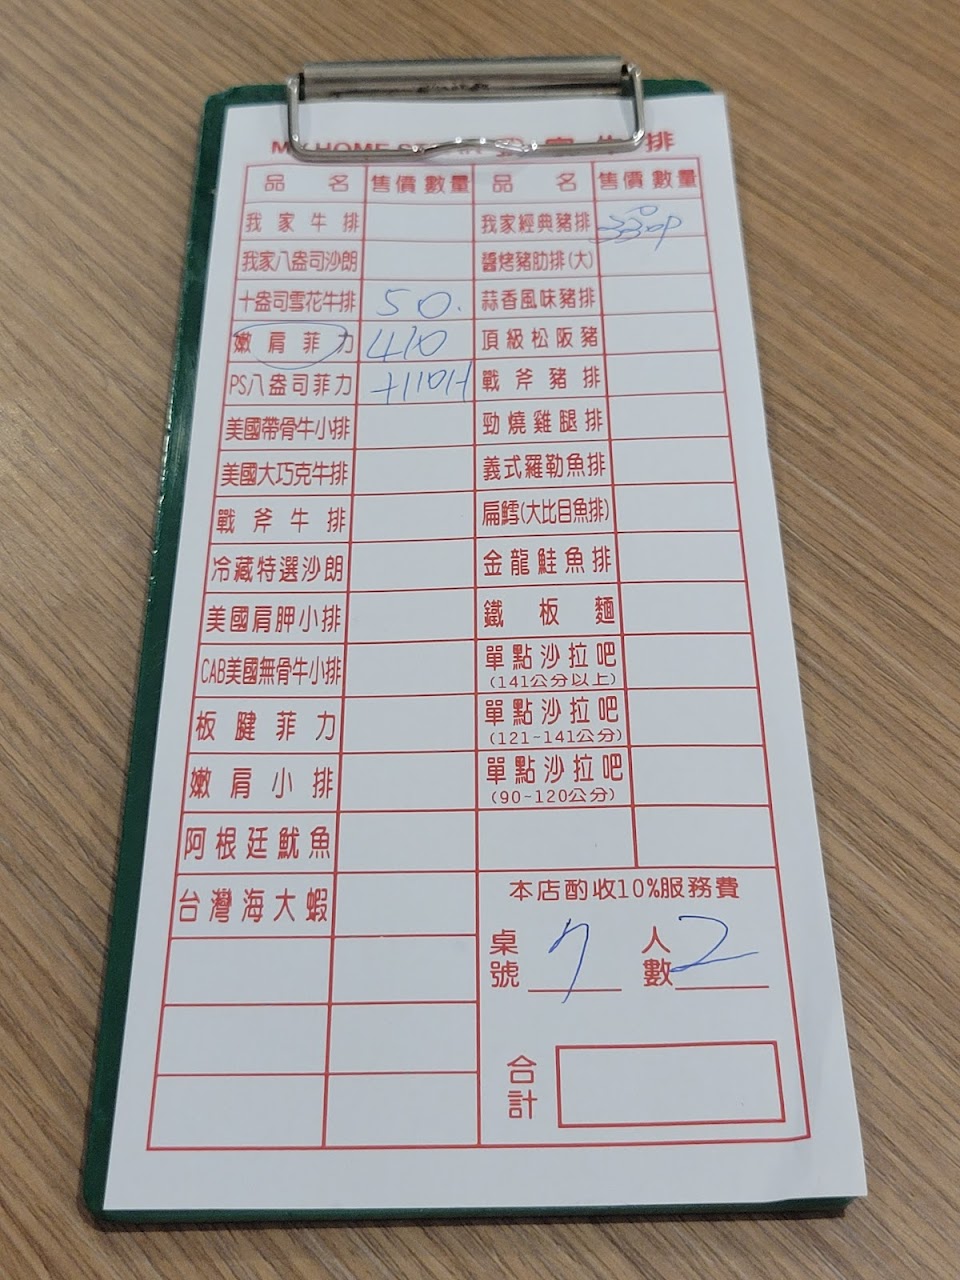 MY HOME 我家牛排
品名 售價數量 品名 售價數量
我家牛排 我家經典豬排
我家八盎司沙朗 醬烤豬肋排(大)
十盎司雪花牛排 50. 蒜香風味豬排
嫩肩菲力 410 頂級松阪豬
PS八盎司菲力 戰斧豬排
美國帶骨牛小排 勁燒雞腿排
美國大巧克牛排 義式羅勒魚排
戰斧牛排 扁鱈(大比目魚排)
冷藏特選沙朗 金龍鮭魚排
美國肩胛小排 鐵板麵
CAB美國無骨牛小排 單點沙拉吧
(141公分以上)
板腱菲力 單點沙拉吧
(121-141公分)
嫩肩小排 單點沙拉吧
(90-120公分)
阿根廷魷魚
台灣海大蝦
本店酌收10%服務費
桌號 7 人數 2
合計